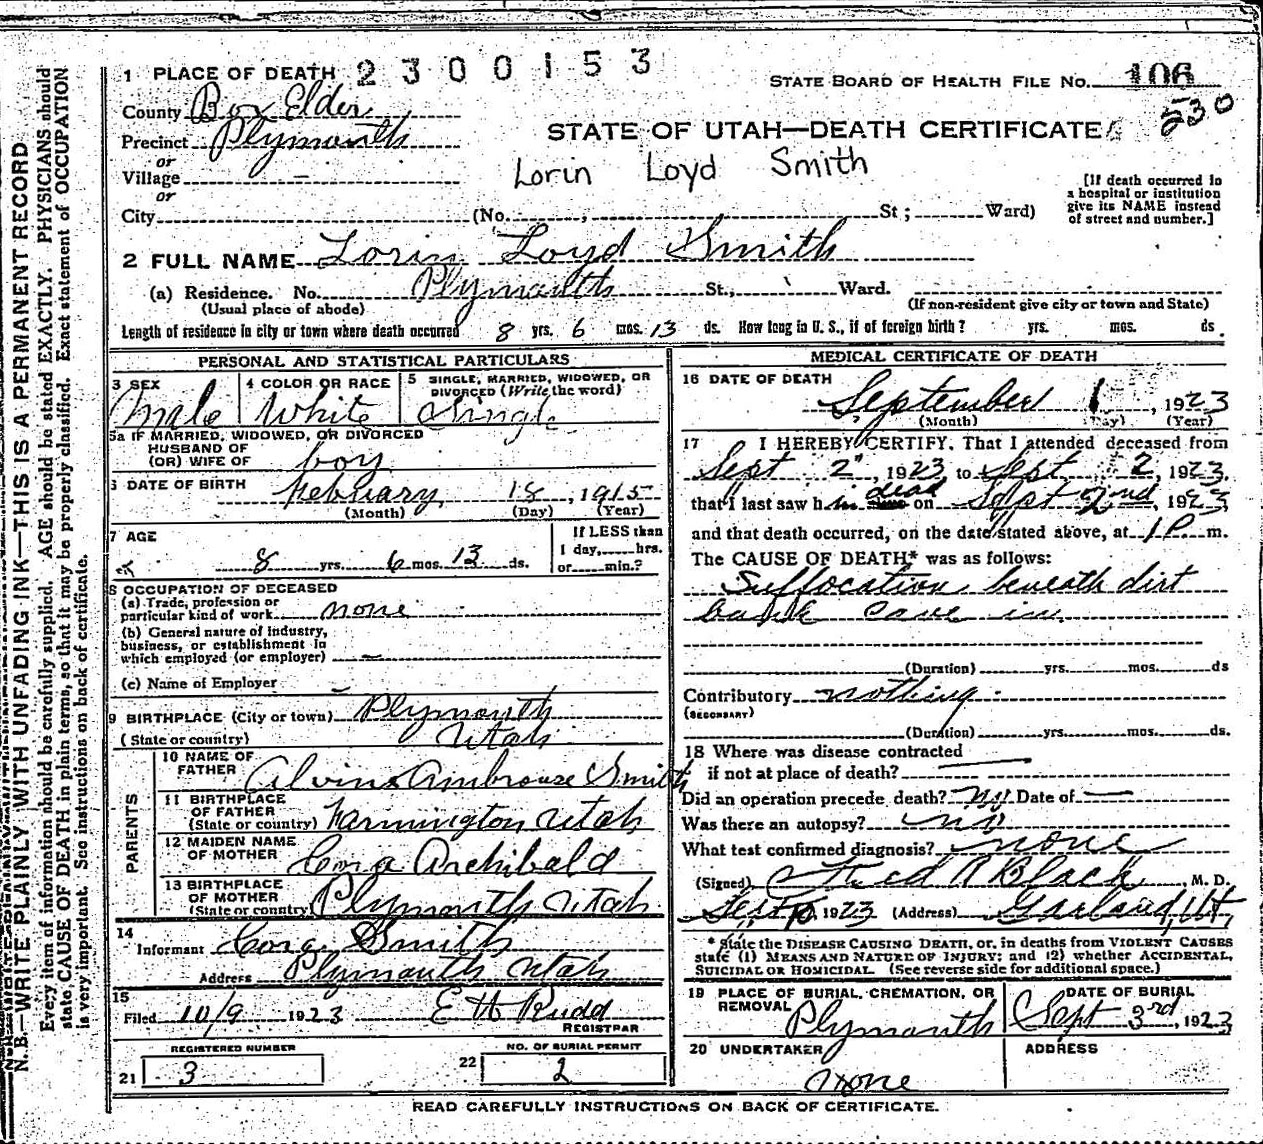 N.B.—WRITE PLAINLY WITH UNFADING INK—THIS IS A PERMANENT RECORD
Every item of information should be carefully supplied. AGE should be stated EXACTLY. PHYSICIANS should
state CAUSE OF DEATH in plain terms, so that it may be properly classified. Exact statement of OCCUPATION
is very important. See instructions on back of certificate.
1 PLACE OF DEATH 2300153
STATE BOARD OF HEALTH FILE No. 106
230
County Box Elder
Precinct Plymouth
STATE OF UTAH—DEATH CERTIFICATE
or
Village –
Lorin Loyd Smith
or
City (No. , St; Ward)
[If death occurred in
a hospital or institution
give its NAME instead
of street and number.]
2 FULL NAME Lorin Loyd Smith
(a) Residence. No. Plymouth St., Ward.
(Usual place of abode) (If non-resident give city or town and State)
Length of residence in city or town where death occurred 8 yrs. 6 mos. 13 ds. How long in U. S., if of foreign birth? yrs. mos. ds.
PERSONAL AND STATISTICAL PARTICULARS
3 SEX 4 COLOR OR RACE 5 SINGLE, MARRIED, WIDOWED, OR
DIVORCED (Write the word)
Male White Single
5a IF MARRIED, WIDOWED, OR DIVORCED
HUSBAND OF
(OR) WIFE OF boy
6 DATE OF BIRTH Febuary 18, 1915
(Month) (Day) (Year)
7 AGE If LESS than
1 day, hrs.
8 yrs. 6 mos. 13 ds. or min.?
8 OCCUPATION OF DECEASED
(a) Trade, profession or
particular kind of work none
(b) General nature of industry,
business, or establishment in
which employed (or employer) –
(c) Name of Employer –
9 BIRTHPLACE (City or town) Plymouth
(State or country) Utah
PARENTS
10 NAME OF
FATHER Alvin Ambrouse Smith
11 BIRTHPLACE
OF FATHER
(State or country) Farmington Utah
12 MAIDEN NAME
OF MOTHER Cora Archibald
13 BIRTHPLACE
OF MOTHER
(State or country) Plymouth Utah
14
Informant Cora Smith
Address Plymouth Utah
15
Filed 10/9 1923 E H Rudd
REGISTRAR
REGISTERED NUMBER NO. OF BURIAL PERMIT
21 3 22 2
MEDICAL CERTIFICATE OF DEATH
16 DATE OF DEATH
September 1, 1923
(Month) (Day) (Year)
17 I HEREBY CERTIFY, That I attended deceased from
Sept 2", 1923 to Sept 2, 1923
that I last saw him dead on Sept 2nd, 1923
and that death occurred, on the date stated above, at 1 P. m.
The CAUSE OF DEATH* was as follows:
Suffocation beneath dirt
bank cave in
(Duration) yrs. mos. ds
Contributory nothing
(SECONDARY)
(Duration) yrs. mos. ds.
18 Where was disease contracted
if not at place of death?
Did an operation precede death? no Date of –
Was there an autopsy? no
What test confirmed diagnosis? none
(Signed) Fred R Black M. D.
Sept 10, 1923 (Address) Garland, Ut,
* State the DISEASE CAUSING DEATH, or, in deaths from VIOLENT CAUSES
state (1) MEANS AND NATURE OF INJURY; and (2) whether ACCIDENTAL,
SUICIDAL OR HOMICIDAL. (See reverse side for additional space.)
19 PLACE OF BURIAL, CREMATION, OR
REMOVAL
DATE OF BURIAL
Plymouth Sept 3rd, 1923
20 UNDERTAKER ADDRESS
None
READ CAREFULLY INSTRUCTIONS ON BACK OF CERTIFICATE.